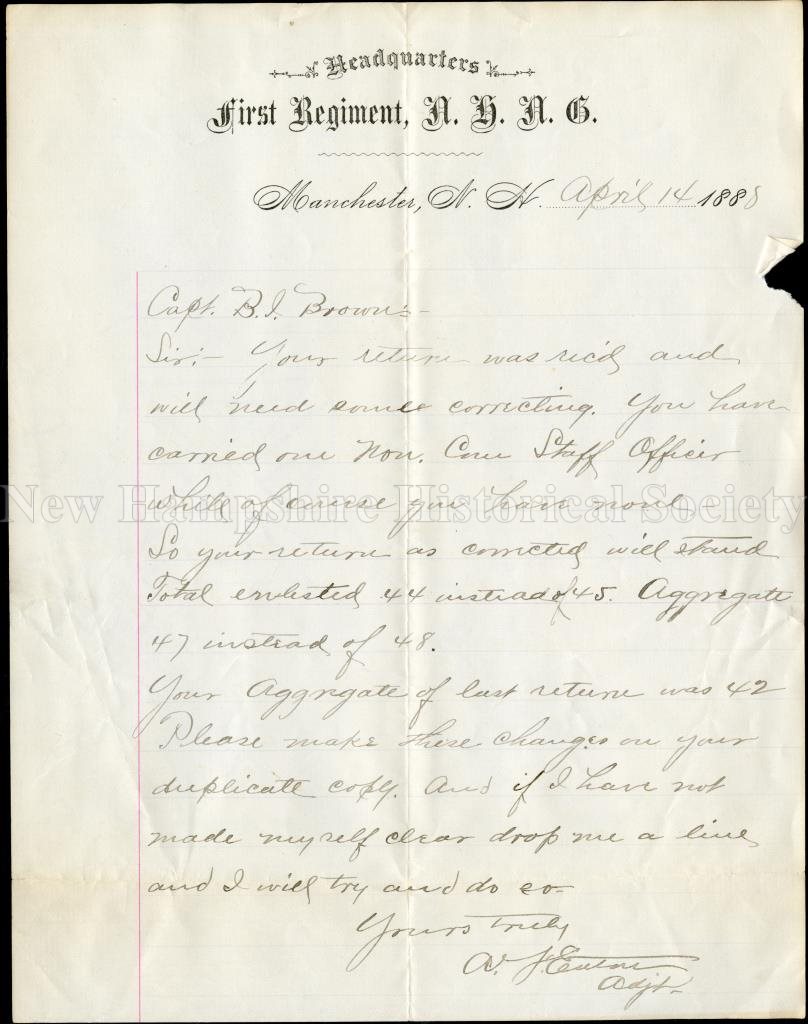 Headquarters
First Regiment, N. H. N. G.
Manchester, N. H. April 14 1888
Capt. B. I. Brown:-
Sir:- Your return was rec'd and
will need some correcting. You have
carried one Non. Com Staff Officer
while of course you have none -
So your return as corrected will stand
Total enlisted 44 instead of 45. Aggregate
47 instead of 48.
Your Aggregate of last return was 42
Please make these changes on your
duplicate copy. And if I have not
made myself clear drop me a line
and I will try and do so-
Yours truly
Adjt.
New Hampshire Historical Society